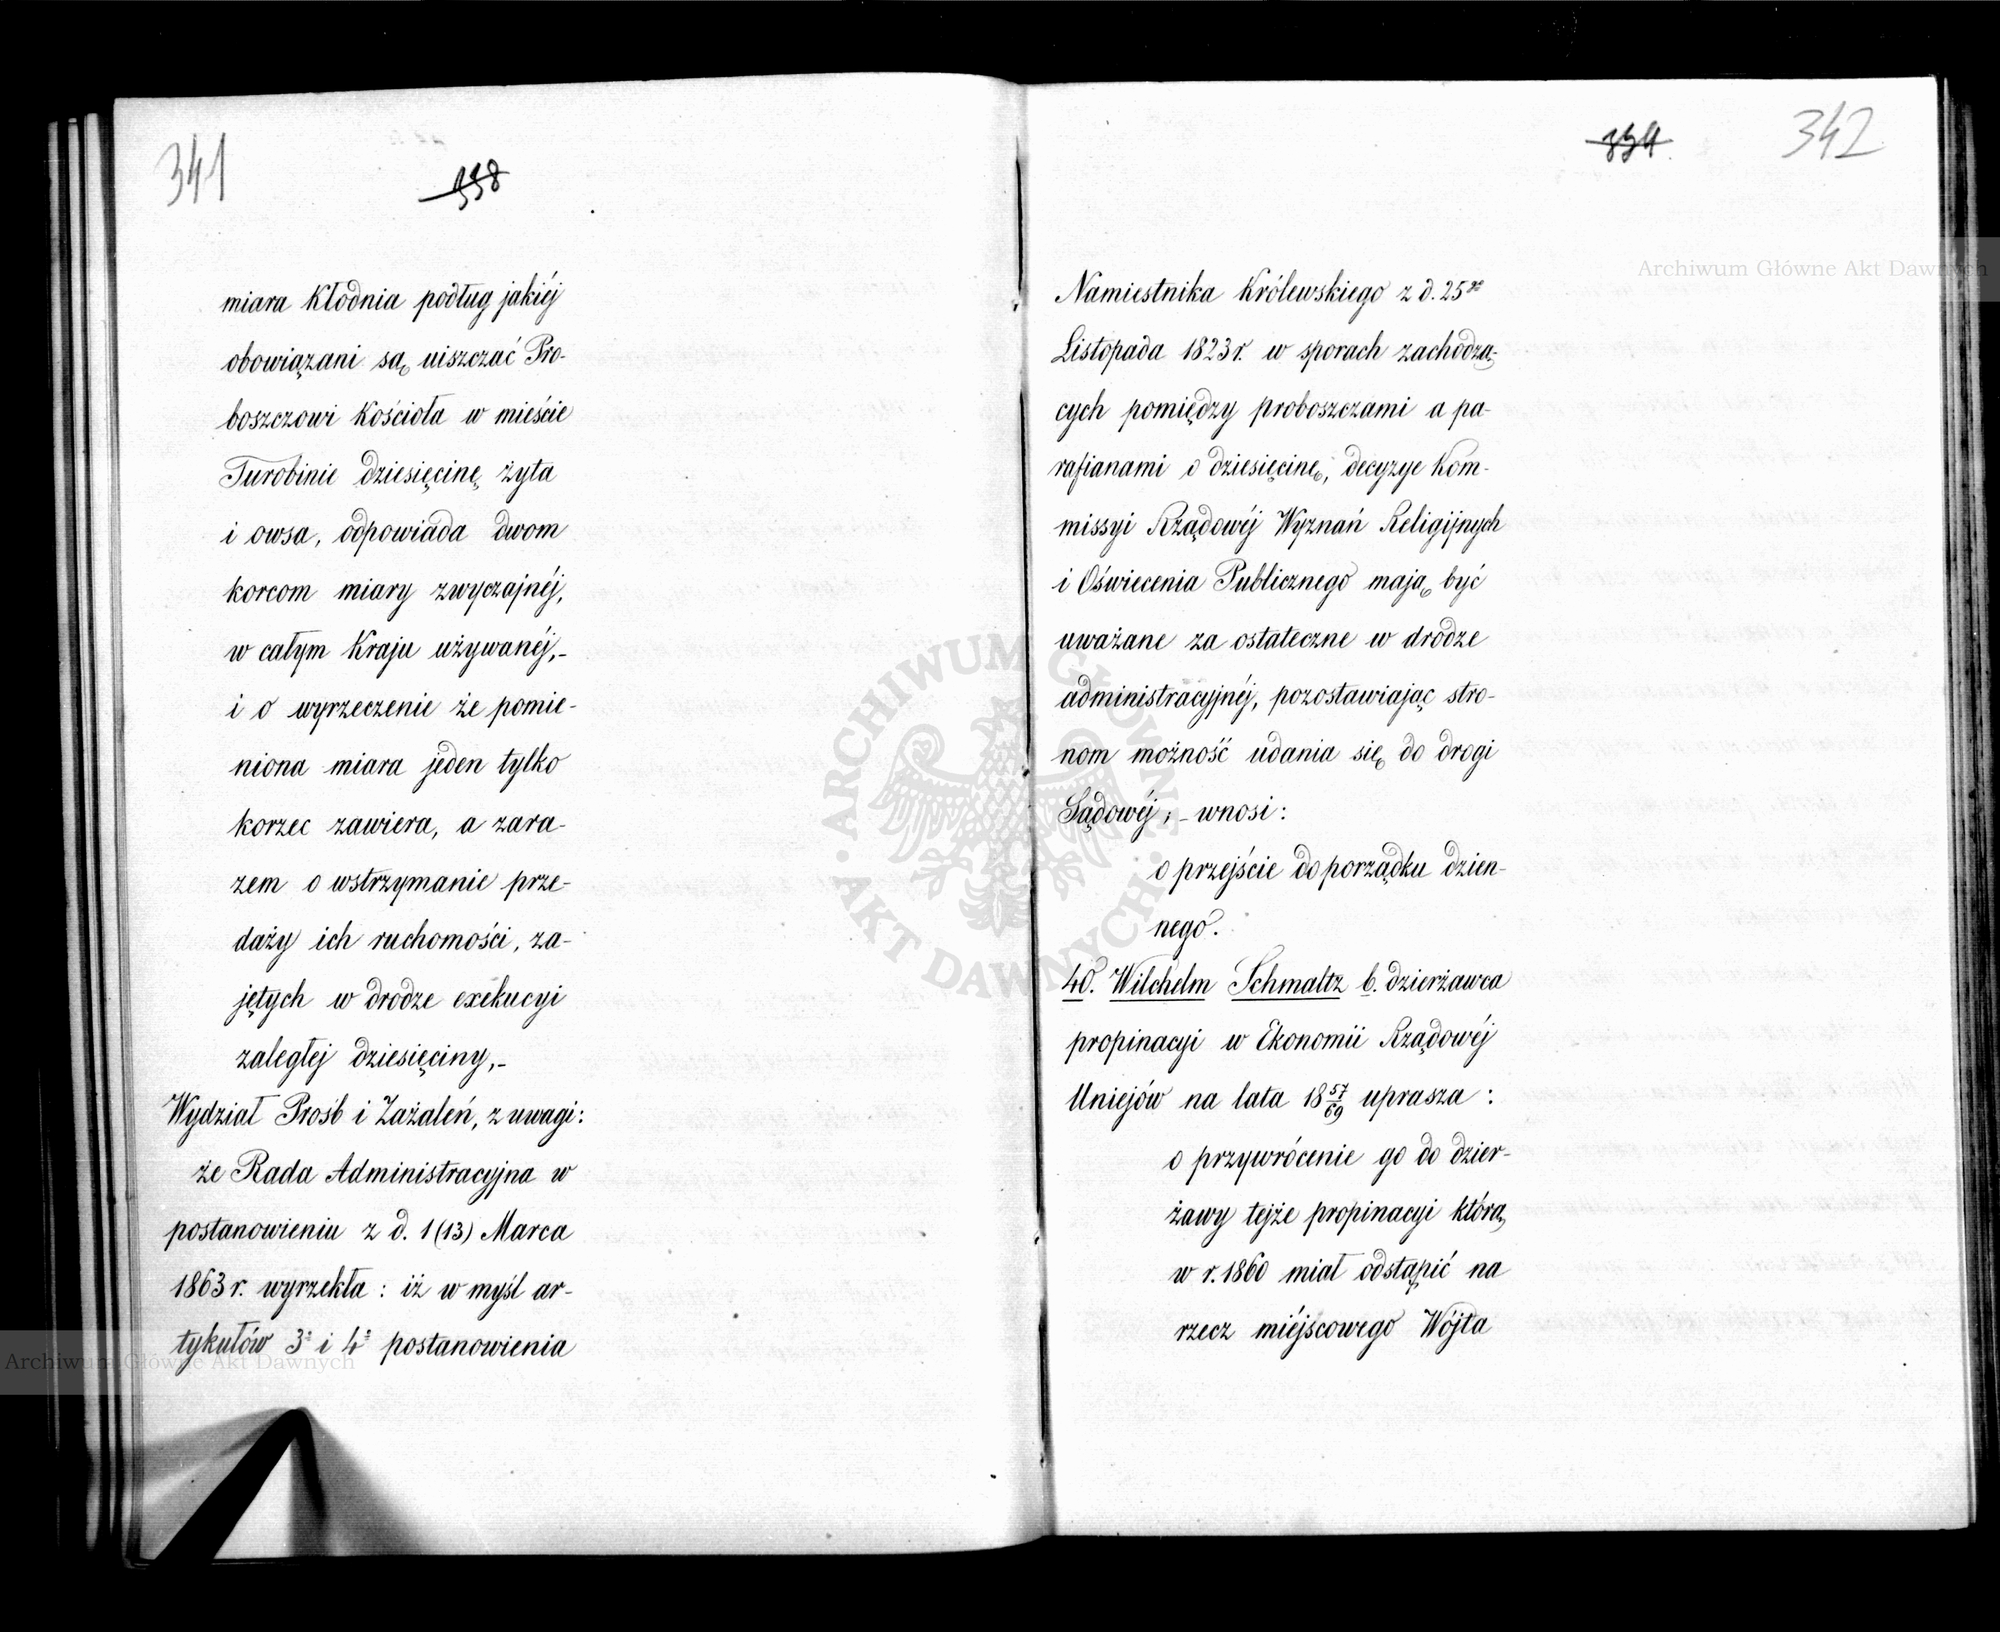 341
338
miara Kłodnia podług jakiéj
obowiązani są uiszczać Pro-
boszczowi Kościoła w mieście
Turobinie dziesięcinę żyta
i owsa, odpowiada dwom
korcom miary zwyczajnéj,
w całym Kraju używanéj,-
i o wyrzeczenie że pomie-
niona miara jeden tylko
korzec zawiera, a zara-
zem o wstrzymanie prze-
daży ich ruchomości, za-
jętych w drodze exekucyi
zaległej dziesięciny,-
Wydział Prośb i Zażaleń, z uwagi:
że Rada Administracyjna w
postanowieniu z d. 1 (13) Marca
1863 r. wyrzekła: iż w myśl ar-
tykułów 3º i 4º postanowienia
342
Namiestnika Królewskiego z d. 25go
Listopada 1823 r. w sporach zachodzą-
cych pomiędzy proboszczami a pa-
rafianami o dziesięcinę, decyzye Kom-
missyi Rządowéj Wyznań Religijnych
i Oświecenia Publicznego mają być
uważane za ostateczne w drodze
administracyjnéj, pozostawiając stro-
nom możność udania się do drogi
Sądowéj; - wnosi:
o przejście do porządku dzien-
nego.
40. Wilchelm Schmaltz b. dzierżawca
propinacyi w Ekonomii Rządowéj
Uniejów na lata 18 57/69 uprasza:
o przywrócenie go do dzier-
żawy tejże propinacyi którą
w r. 1860 miał odstąpić na
rzecz miéjscowego Wójta
Archiwum Główne Akt Dawnych
Archiwum Główne Akt Dawnych
ARCHIWUM GŁÓWNE
AKT DAWNYCH